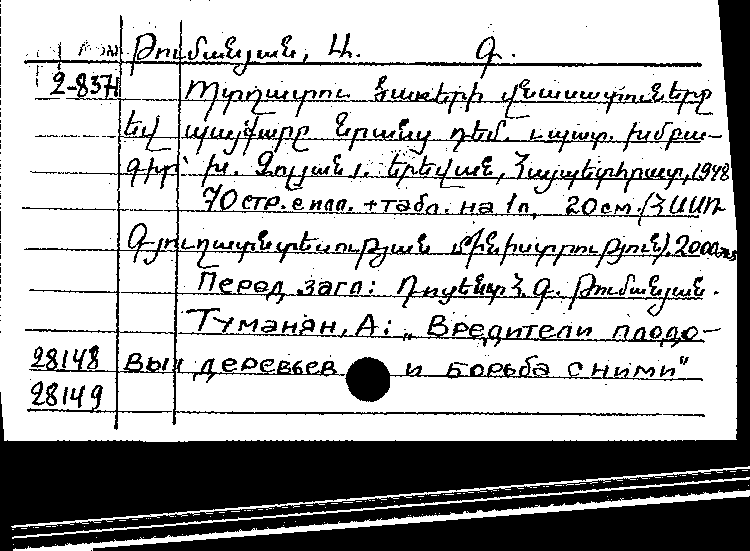 Թումանյան, Ա. Գ.
2-8374 Պտղատու ծառերի վնասատուները
եվ պայքարը նրանց դեմ. պատ. խմբա-
գիր՝ խ. Երեվան, Հայպետհրատ, 1948
70 стр. с илл. + табл. на 1 л. 20 см. (ՀՍՍՌ
Գյուղատնտեսության մինիստրություն). 2000
Перед загл: Դոցենտ Հ. Գ. Թումանյան.
Туманян, А: „Вредители плодо-
28148 вых деревьев и борьба с ними"
28149